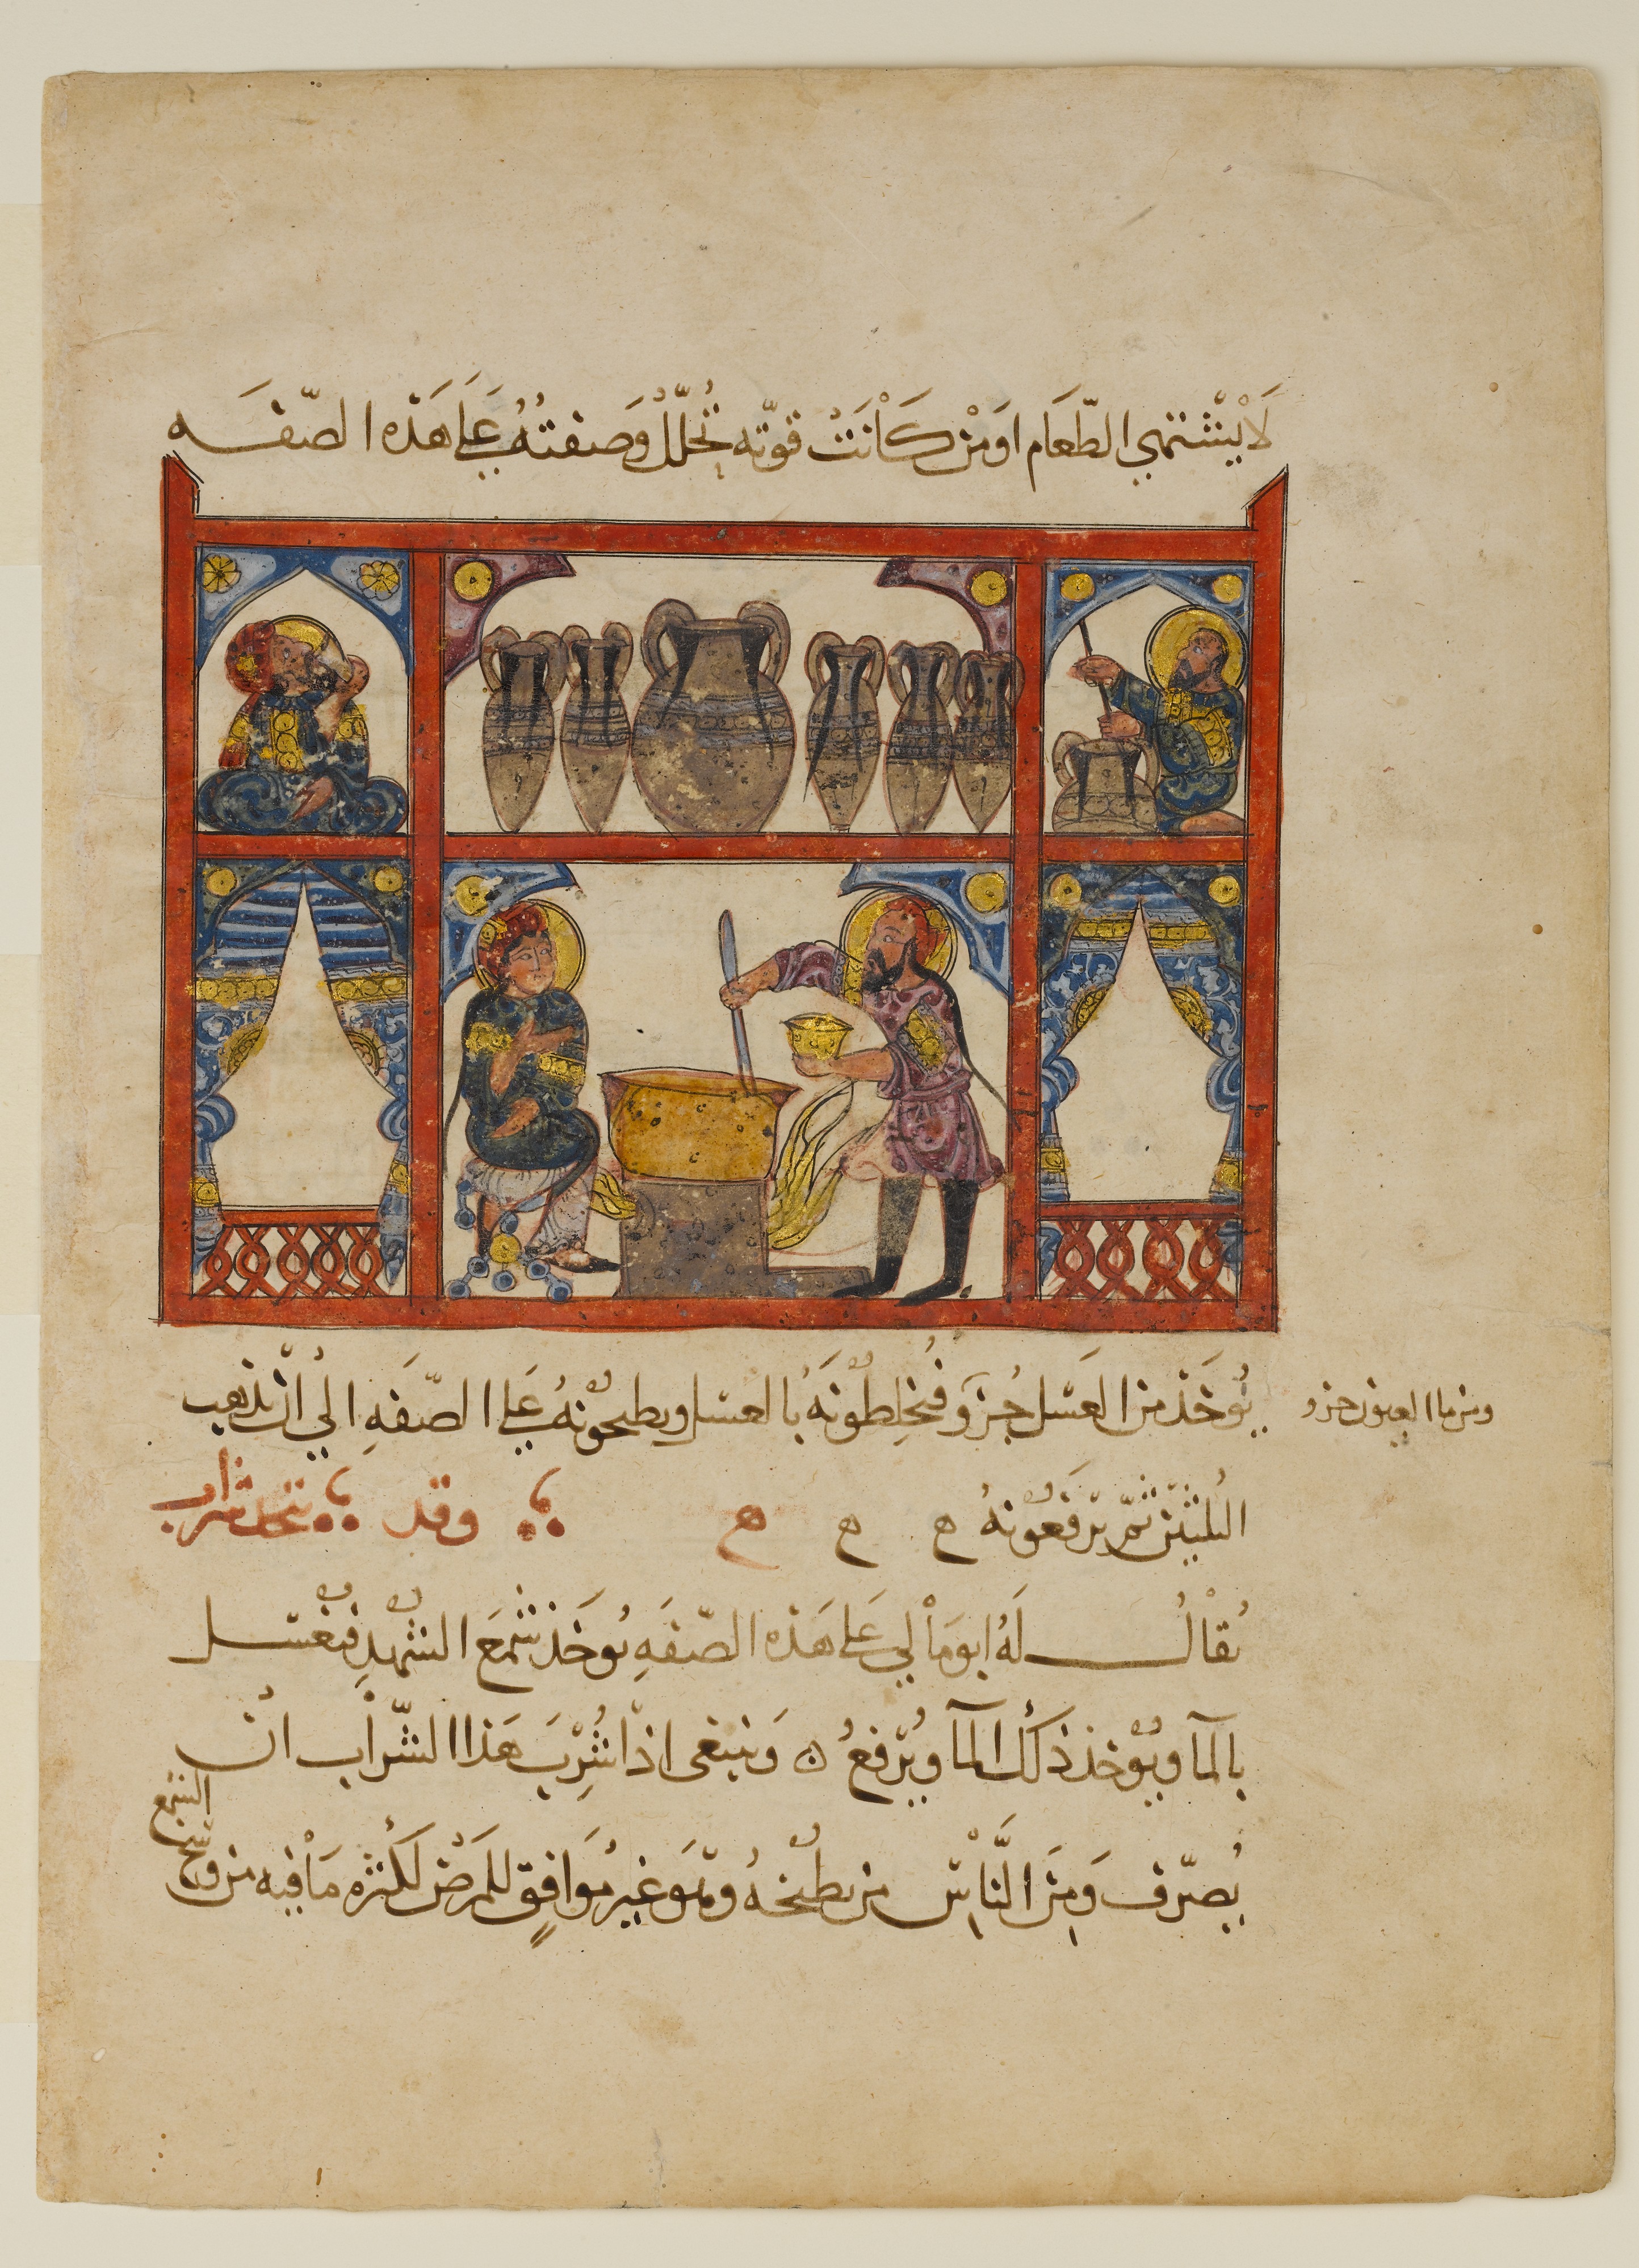 لَا يَشْتَهِي الطَّعَام اوَمَنْ كَانَتْ قوّته تُحَلَّلُ وَصِفَتُهُ عَلَى هَذه الصّفَه
يُوخَذ مِنَ العَسَل جُزو فَيَخلِطُونَهُ بُالعسَل ويطبخُونهُ عَلى الصّفَهِ الي ان يذهب
ومن ما العيون جزو
الثلثين ثم يَرفَعُونهُ ه ه ه وقد يتخذ شراب
يُقالُ لَهُ ابومَالي عَلى هَذه الصّفَهِ يُوخَذ شمعَ الشهدِ فيغسَل
بالمآ ويُوخذ ذَلك المآ ويُرْفعُ ه وَينبغي اذا شُرِبَ هَذا الشَّراب انْ
يُصرّف وَمِنَ النَّاسِ من يطبُخهُ وَهَوَ غيرُ مُوَافِقٍ للمَرضى لكَثرَه مَا فيه من وسَخ
الشمع